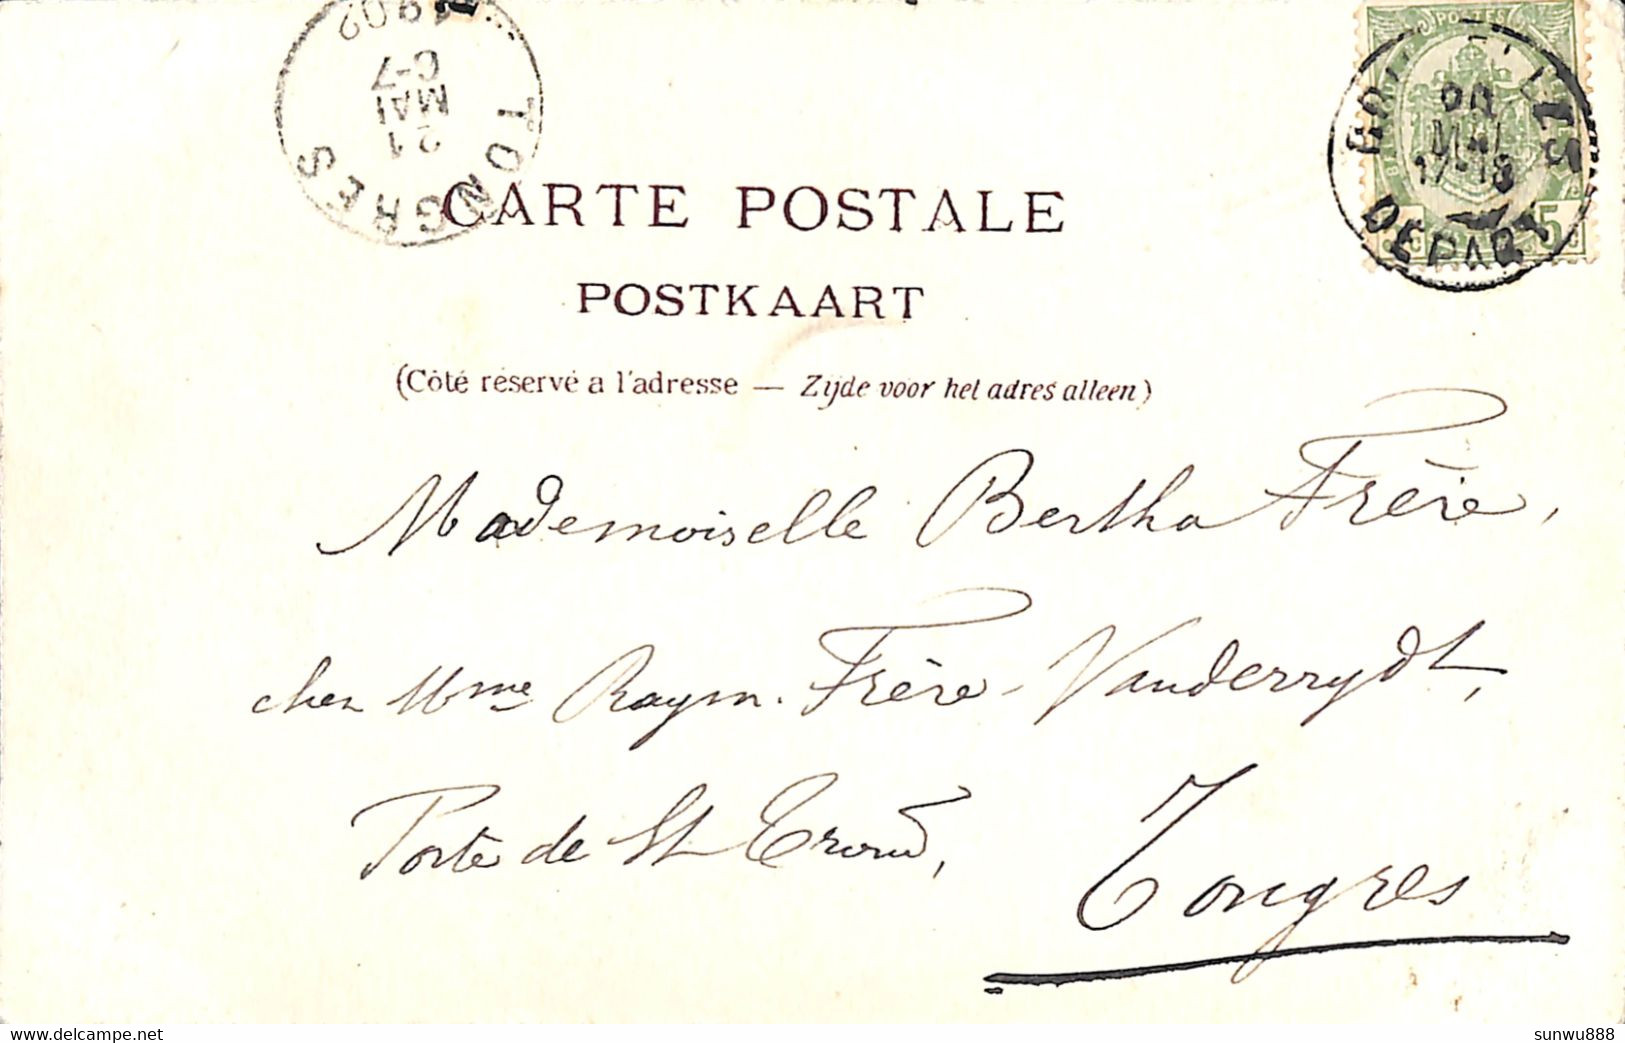 TONGRES
21
MAI
6-7
1902
POSTES
20
MAI
17-18
DEPART
5
CARTE POSTALE
POSTKAART
(Côté réservé a l'adresse — Zijde voor het adres alleen)
Mademoiselle Bertha Frère,
chez Mme Raym. Frère-Vanderrydt,
Porte de St Trond,
Tongres
www.delcampe.net
sunwu888